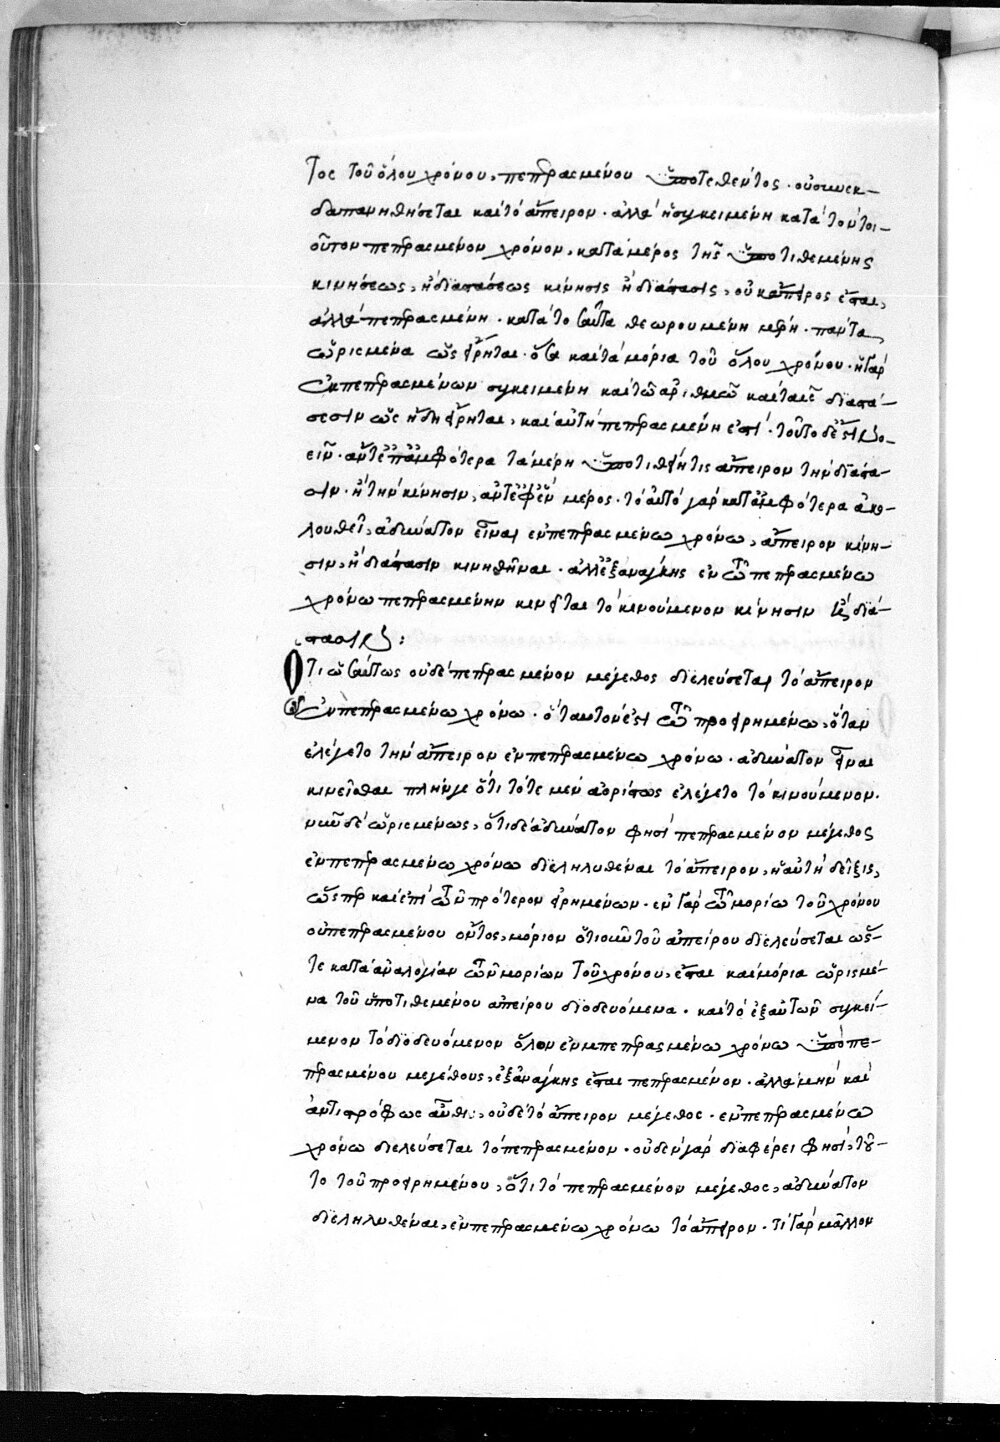 τος τοῦ ὅλου χρόνου, πεπερασμένου ὑποτεθέντος· οὐ συνεκ-
δαπανηθήσεται καὶ τὸ ἄπειρον· ἀλλὰ ἡ συγκειμένη κατὰ τὸν τοι-
οῦτον πεπερασμένον χρόνον, κατὰ μέρος τῆς ὑποτιθεμένης
κινήσεως, ἢ διαστάσεως κίνησις ἢ διάστασις, οὐκ ἄπειρος ἔσται,
ἀλλὰ πεπερασμένη· κατὰ τοσαῦτα θεωρουμένη μέρη· πάντα
ὡρισμένα ὡς εἴρηται· ὅσα καὶ τὰ μόρια τοῦ ὅλου χρόνου· ἡ γὰρ
ἐκ πεπερασμένων συγκειμένη καὶ τῶ ἀριθμῶ καὶ ταῖς διαστά-
σεσιν ὡς ἤδη εἴρηται, καὶ αὐτὴ πεπερασμένη ἐστί· τοῦτο δέ ἐστι
εῖν· ἄντε ἐπ' ἀμφότερα τὰ μέρη ὑποτιθῆτις ἄπειρον τὴν διάστα-
σιν· ἢ τὴν κίνησιν, ἄντε ἐφ' ἓν μέρος· τὸ αὐτὸ γὰρ κατ' ἀμφότερα ἀκο-
λουθεῖ, ἀδύνατον εἶναι ἐν πεπερασμένω χρόνω, ἄπειρον κίνη-
σιν, ἢ διάστασιν κινηθῆναι· ἀλλ' ἐξ ἀνάγκης ἐν τῶ πεπερασμένω
χρόνω πεπερασμένην κινεῖται τὸ κινούμενον κίνησιν καὶ διά-
στασιν:
Ὅτι ὡσαύτως οὐδὲ πεπερασμένον μέγεθος διελεύσεται τὸ ἄπειρον
ἐν πεπερασμένω χρόνω· ὃ ταυτόν ἐστι τῶ προειρημένω, ὅταν
ἐλέγετο τὴν ἄπειρον ἐν πεπερασμένω χρόνω· ἀδύνατον εἶναι
κινεῖσθαι πλήν γε ὅτι τότε μὲν ἀορίστως ἐλέγετο τὸ κινούμενον·
νῦν δὲ ὡρισμένως, ὅτι δὲ ἀδύνατον φησὶ πεπερασμένον μέγεθος
ἐν πεπερασμένω χρόνω διεληλυθέναι τὸ ἄπειρον, ἡ αὐτὴ δεῖξις,
ὥσπερ καὶ ἐπὶ τῶν πρότερον εἰρημένων· ἐν γὰρ τῶ μορίω τοῦ χρόνου
οὐ πεπερασμένου ὄντος, μόριον ὁτιοῦν τοῦ ἀπείρου διελεύσεται ὥσ-
τε κατὰ ἀναλογίαν τῶν μορίων τοῦ χρόνου, ἔσται καὶ μόρια ὡρισμέ-
να τοῦ ὑποτιθεμένου ἀπείρου διοδευόμενα· καὶ τὸ ἐξ αὐτῶν συγκεί-
μενον τὸ διοδευόμενον ὅλον ἐν πεπερασμένω χρόνω ὑπὸ πε-
περασμένου μεγέθους, ἐξ ἀνάγκης ἔσται πεπερασμένον· ἀλλὰ μὴν καὶ
ἀντιστρόφως αὖθις, οὐδὲ τὸ ἄπειρον μέγεθος· ἐν πεπερασμένω
χρόνω διελεύσεται τὸ πεπερασμένον· οὐδὲν γὰρ διαφέρει φησὶ, τοῦ-
το τοῦ προειρημένου, ὅτι τὸ πεπερασμένον μέγεθος, ἀδύνατον
διεληλυθέναι, ἐν πεπερασμένω χρόνω τὸ ἄπειρον· τί γὰρ μᾶλλον